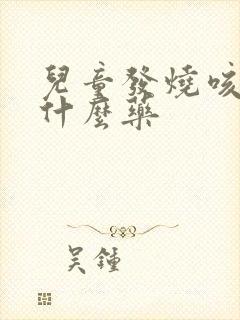 兒童發燒咳
什麼藥
吳鍾